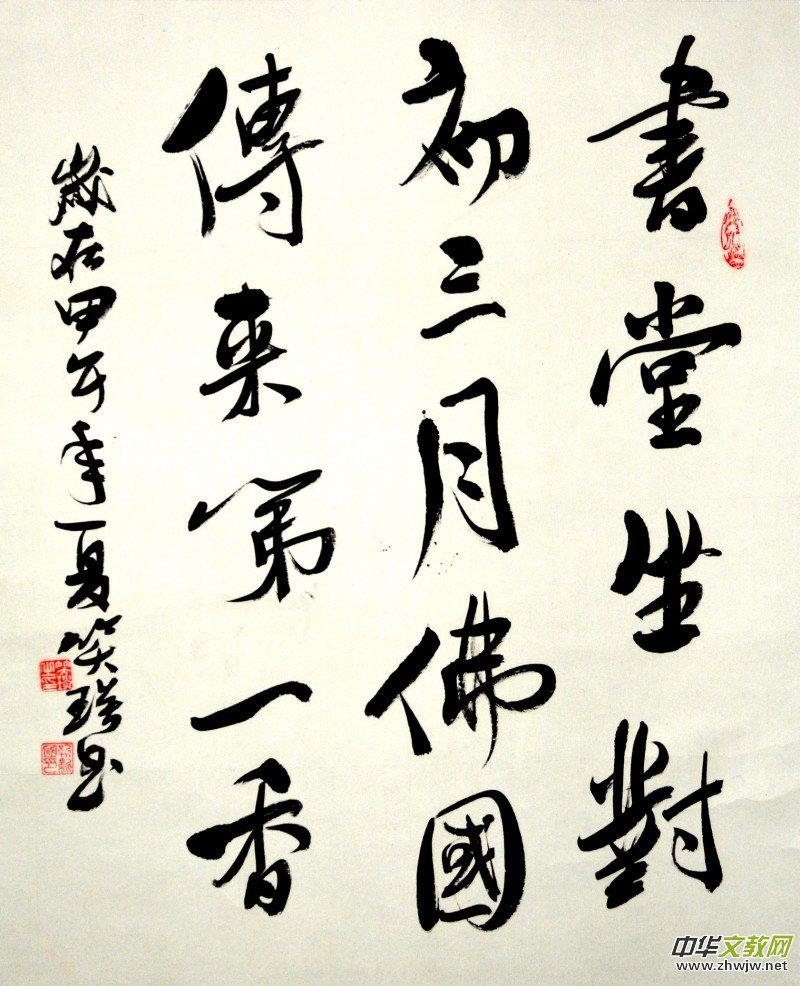 書堂坐對
初三月佛國
傳来第一香
歲在甲午年夏笑瑛书
中华文教网
www.zhwjw.net